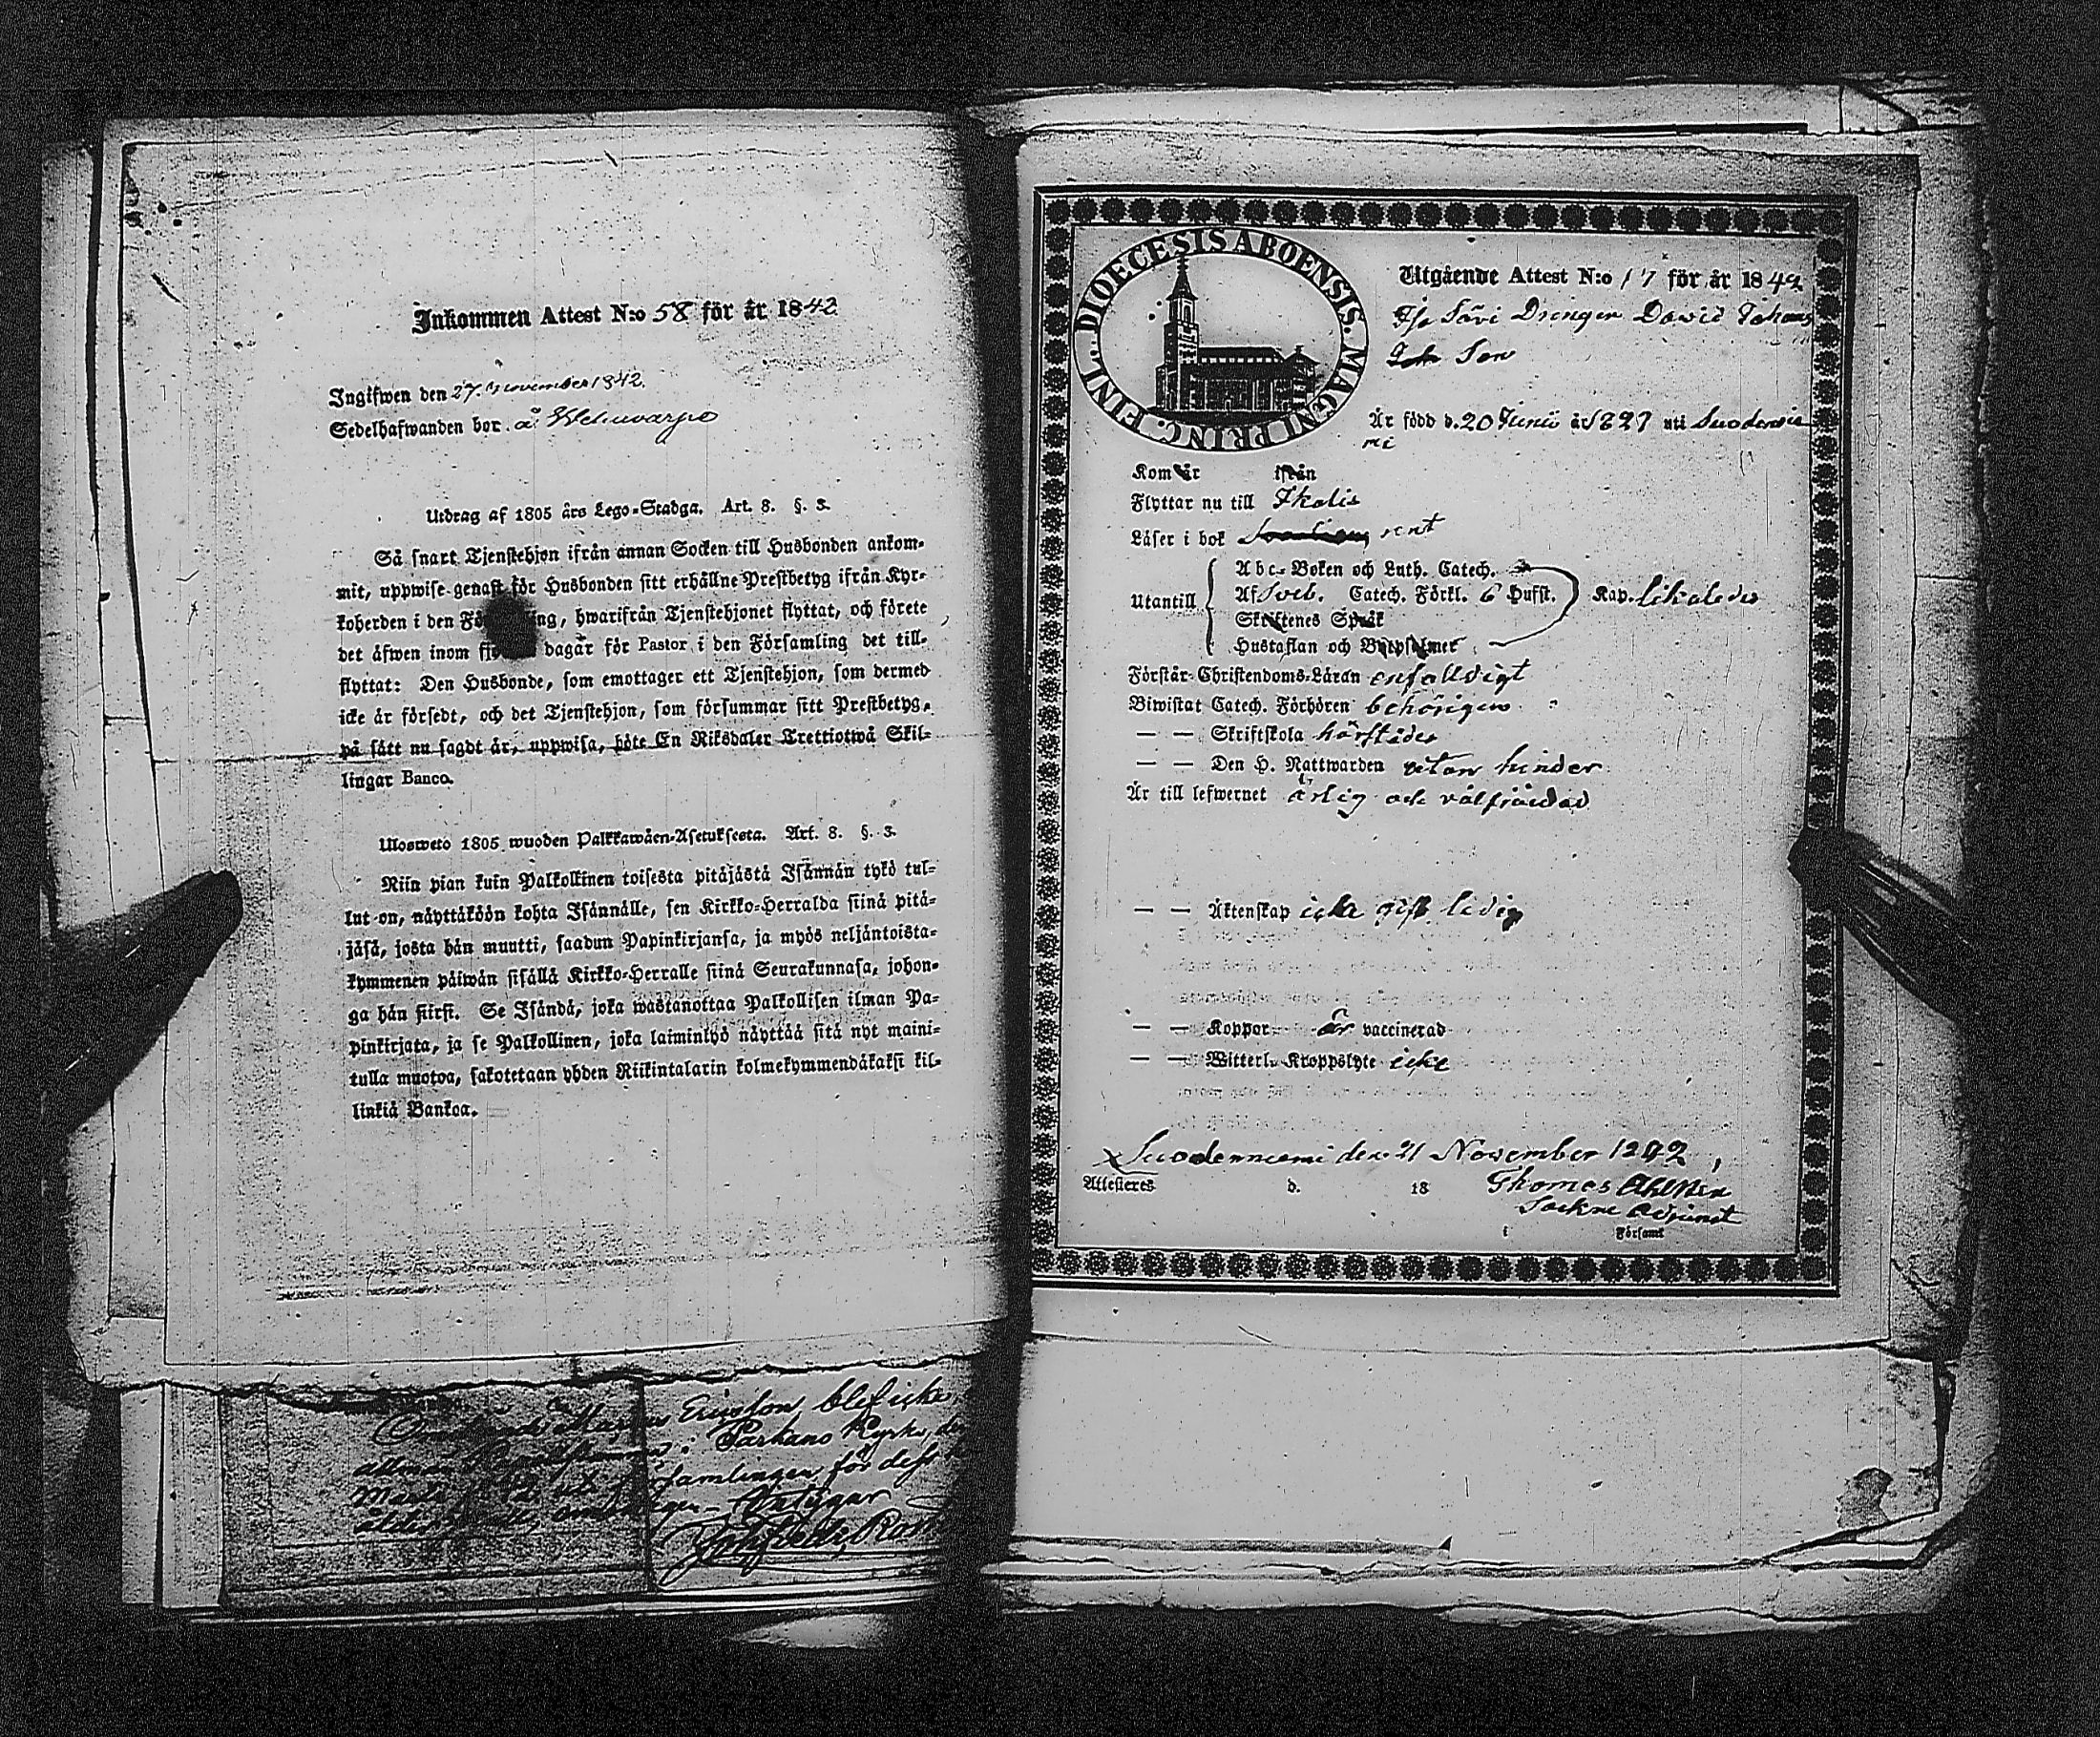 Inkommen Attest N:o 58 för år 1842
Ingifwen den 27. November 1842.
Sedelhafwanden bor å
Utdrag af 1805 års Lego-Stadga. Art. 8. §. 3.
Så snart Tjenstehjon ifrån annan Socken till Husbonden ankom-
mit, uppwise genast för Husbonden sitt erhållne Prestbetyg ifrån Kyr-
koherden i den Fö ing, hwarifrån Tjenstehjonet flyttat, och förete
det äfwen inom fj dagar för Pastor i den Församling det till-
flyttat: Den Husbonde, som emottager ett Tjenstehjon, som dermed
icke är försedt, och det Tjenstehjon, som försummar sitt Prestbetyg,
på sätt nu sagdt är, uppwisa, böte En Riksdaler Trettiotwå Skil-
lingar Banco.
Ulosweto 1805 wuoden Palkkawäen-Asetuksesta. Art. 8. §. 3.
Niin pian kuin Palkollinen toisesta pitäjästä Isännän tykö tul-
lut on, näyttäköön kohta Isännälle, sen Kirkko-Herralda siinä pitä-
jäsä, josta hän muutti, saadun Papinkirjansa, ja myös neljäntoista-
kymmenen päiwän sisällä Kirkko-Herralle siinä Seurakunnasa, johon-
ga hän siirsi. Se Isändä, joka wastanottaa Palkollisen ilman Pa-
pinkirjata, ja se Palkollinen, joka laiminlyö näyttää sitä nyt maini-
tulla muotoa, sakotetaan yhden Riikintalarin kolmekymmendäkaksi kil-
linkiä Bankoa.
Ericsson blef icke
i Parkano Kyrka, de
församlingen för dess
Antygar
DIOECESIS ABOENSIS. MAGNI PRINC. FINL.
Utgående Attest N:o 17 för år 1842
Drengen David Johans
Son
Är född d. 20 Junii år 1827 uti Suodennie
mi
Kom år ifrån
Flyttar nu till Ikalis
Läser i bok rent
Utantill
Abc-Boken och Luth. Catech.
Af Sveb. Catech. Förkl. 6 Hufst. Kap. likaledes
Skriftenes Språk
Hustaflan och Botpsalmer
Förstår Christendoms-Läran enfalldigt
Biwistat Catech. Förhören behörigen
— — Skriftskola härstädes
— — Den H. Nattwarden utan hinder
Är till lefwernet ärlig och välfräjdad
— — Äktenskap icke gift ledig
— — Koppor Är vaccinerad
— — Witterl. Kroppslyte icke
Suodenniemi den 21 November 1842,
Attesteres d. 18 Thomas
Sockne Adjunct
i Församl